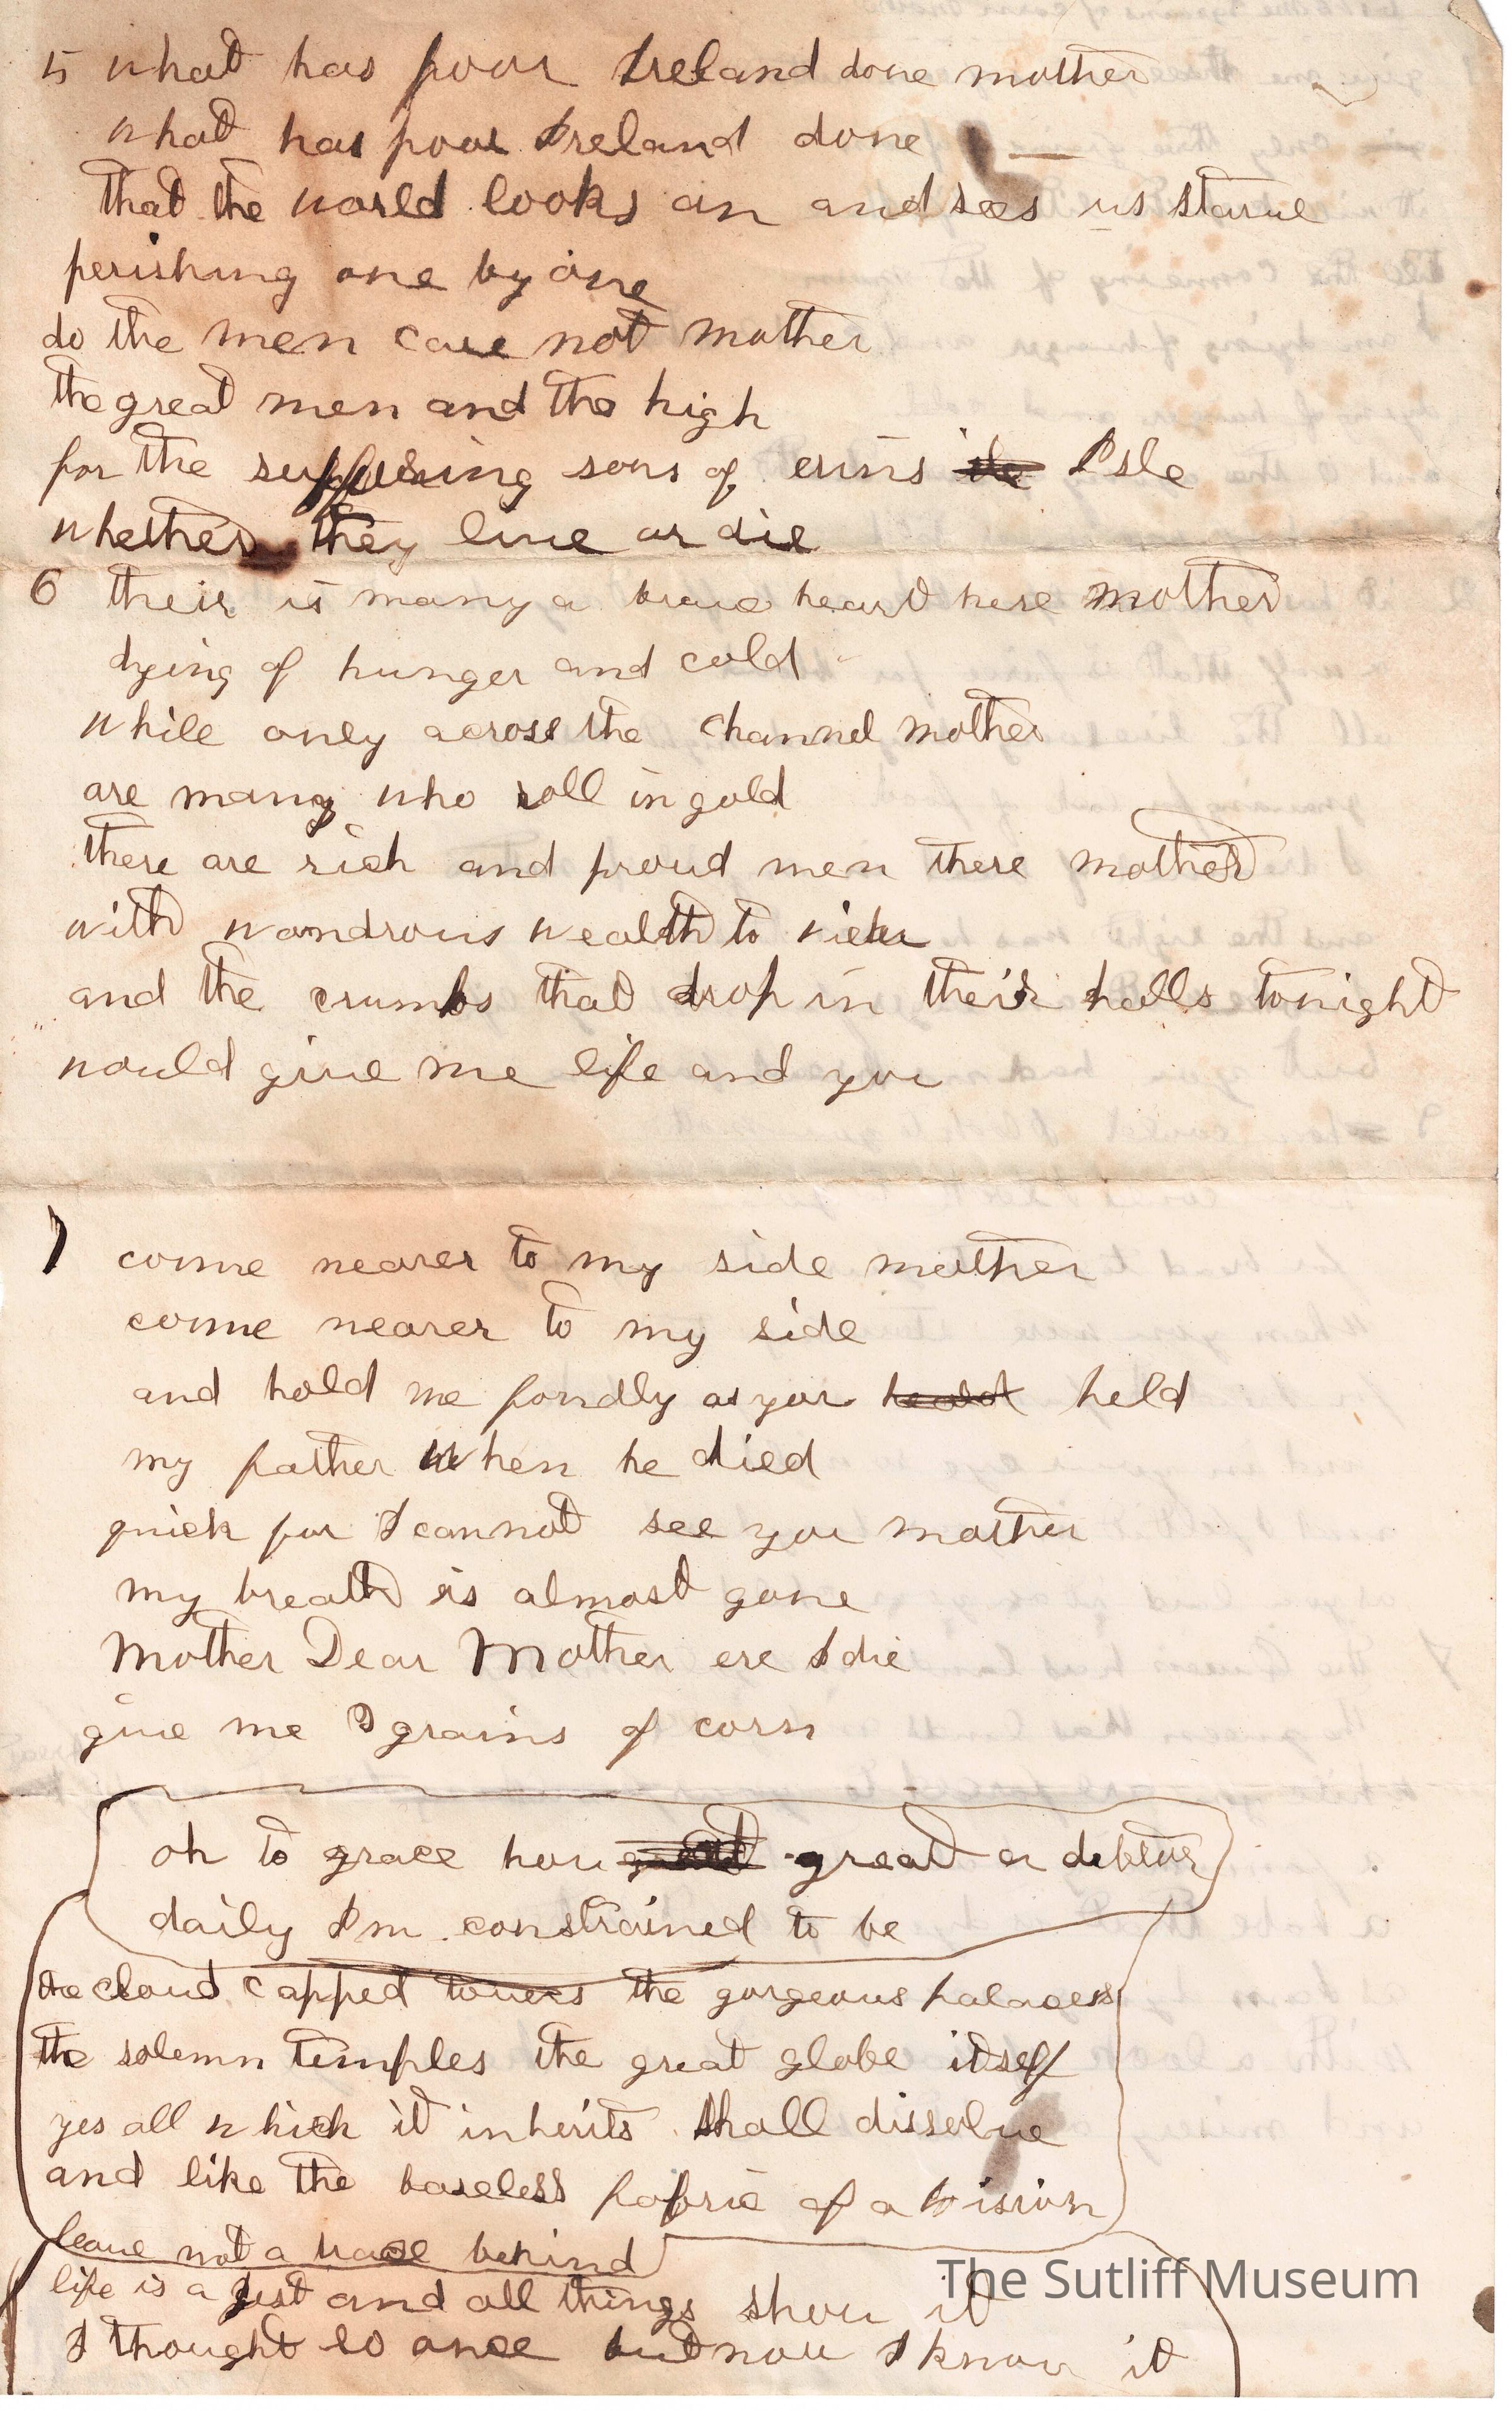 5 what has poor Ireland done mother
what has poor Ireland done
that the world looks on and sees us starve
perishing one by one
do the men care not mother
the great men and the high
for the suffering sons of erins isle Isle
whether they live or die
6 their is many a brave heart here mother
dying of hunger and cold
while only across the channel mother
are many who roll in gold
there are rich and proud men there mother
with wondrous wealth to view
and the crumbs that drop in their halls tonight
would give me life and you
7 come nearer to my side mother
come nearer to my side
and hold me fondly as you held
my father when he died
quick for I cannot see you mother
my breath is almost gone
Mother Dear Mother ere I die
give me 3 grains of corn
oh to grace how great a debtor
daily I'm constrained to be
the cloud capped towers the gorgeous palaces
the solemn temples the great globe itself
yes all which it inherits shall dissolve
and like the baseless fabric of a vision
leave not a trace behind
life is a jest and all things show it
I thought so once but now I know it
The Sutliff Museum